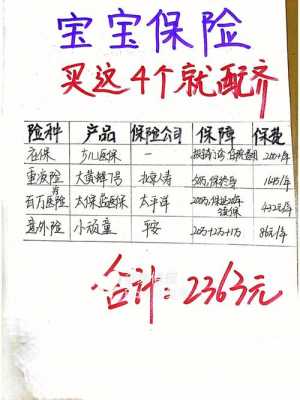 宝宝保险
买这4个就配齐
险种 产品 保险公司 保障 保费
医保 少儿医保 — 报销门诊 住院费用 200+/年
重疾险 大黄蜂7号 北京人寿 50万/保终身 1645/年
百万医疗险 太保医保 太平洋 200万/保证20年续保 432元/年
意外险 小顽童 平安 20万+2万+1万 86元/年
合计:2363元